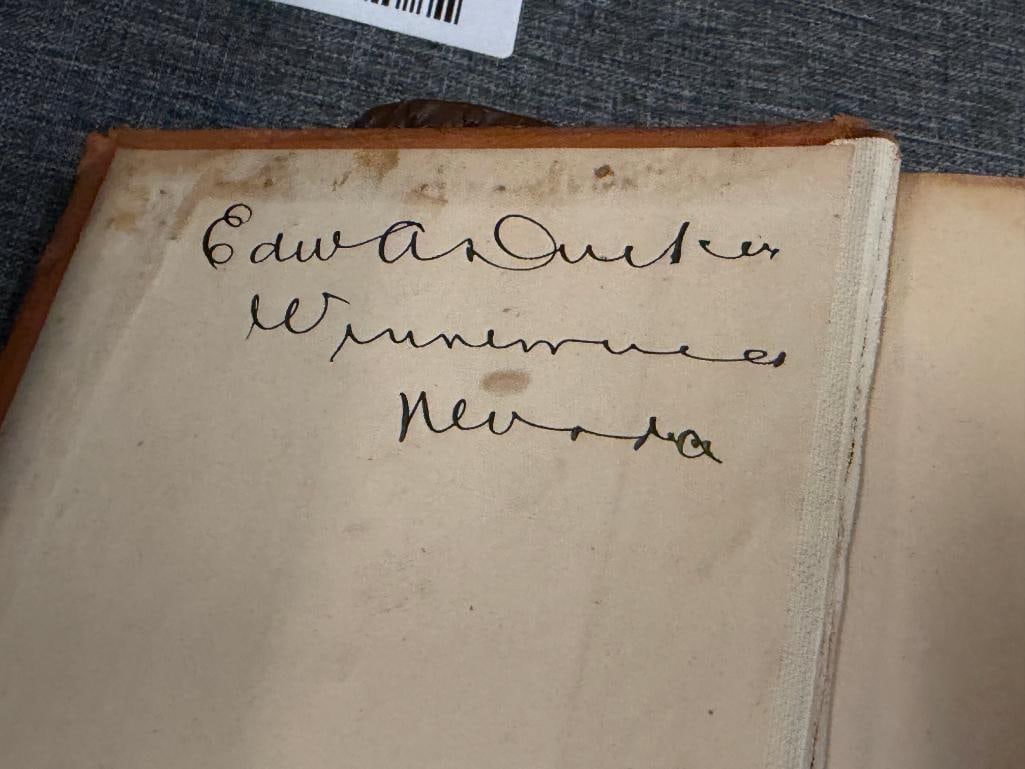 Edw A Ducker
Winnemucca
Nevada